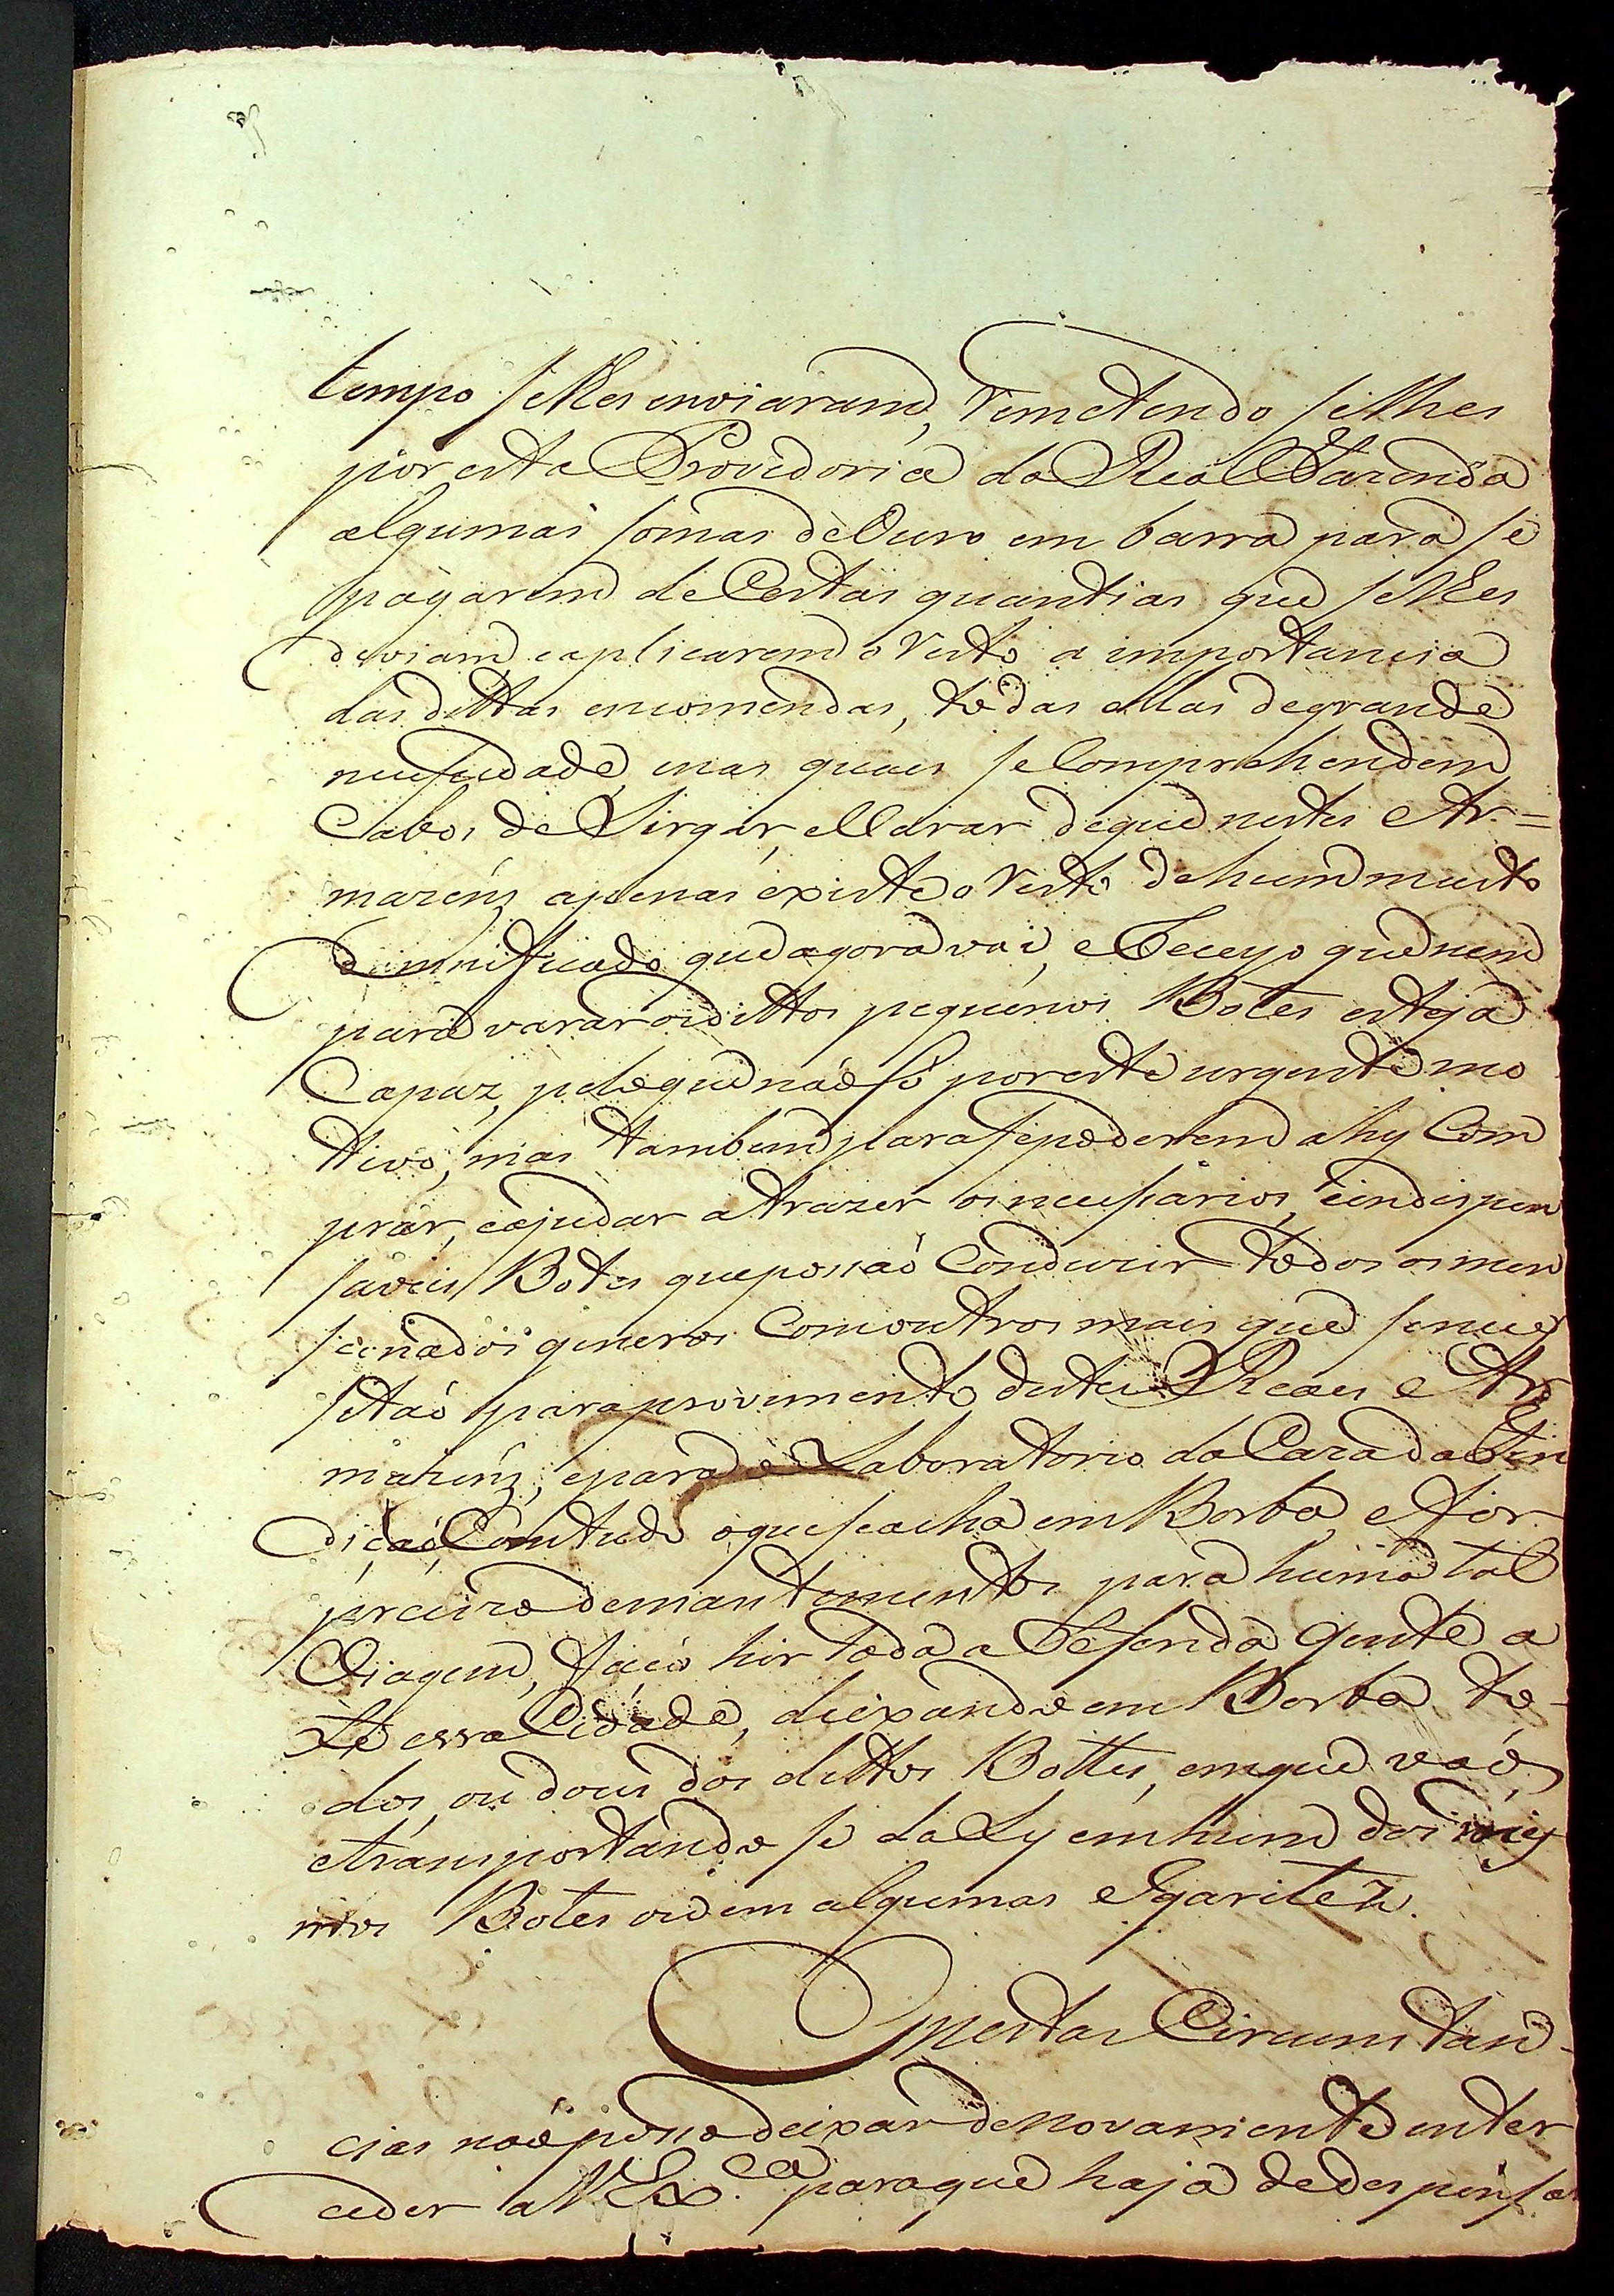 tempo selhes enviaram, remetendo selhes
por esta Provedoria da Real Fazenda
algumas somas de Ouro em barra para se
pagarem de Certas quantias que selhes
deviam e aplicarem o resto a importancia
das dittas encomendas, todas ellas de grande
necessidade, enas quaes se Comprehendem
Cabos de Sirgar, e Varar de que nestes Ar=
mazens apenas existe o resto de hum muito
damnificado que agora vai, e Receyo que nem
para varar os dittos pequenos Botes esteja
Capaz, pelo que não só por este urgente mo
tivo, mas tambem para se poderem ahy Com
prar, e ajudar a trazer os necessarios, e indispen
saveis Botes que possaõ Conduzir todos os men
sionados generos Com outros mais que se neces
sitaõ para provimento destes Reaes Ar
mazens, e para o Laboratorio da Caza da Fun
diçaõ Comtudo o que se acha em Borba, e for
precizo de mantimentos para huma tal
Viagem, faço hir toda a Referida gente a
té essa Cidade, deixando em Borba to-
dos, ou dous dos dittos Bottes, em que vaõ,
e transportando se da Ly em hum dos mes
mos Botes ou em algumas Egaritez.
Nestas Circumstan-
cias naõ posso deixar de novamente enter
ceder a V Ex.ca para que haja de despensar